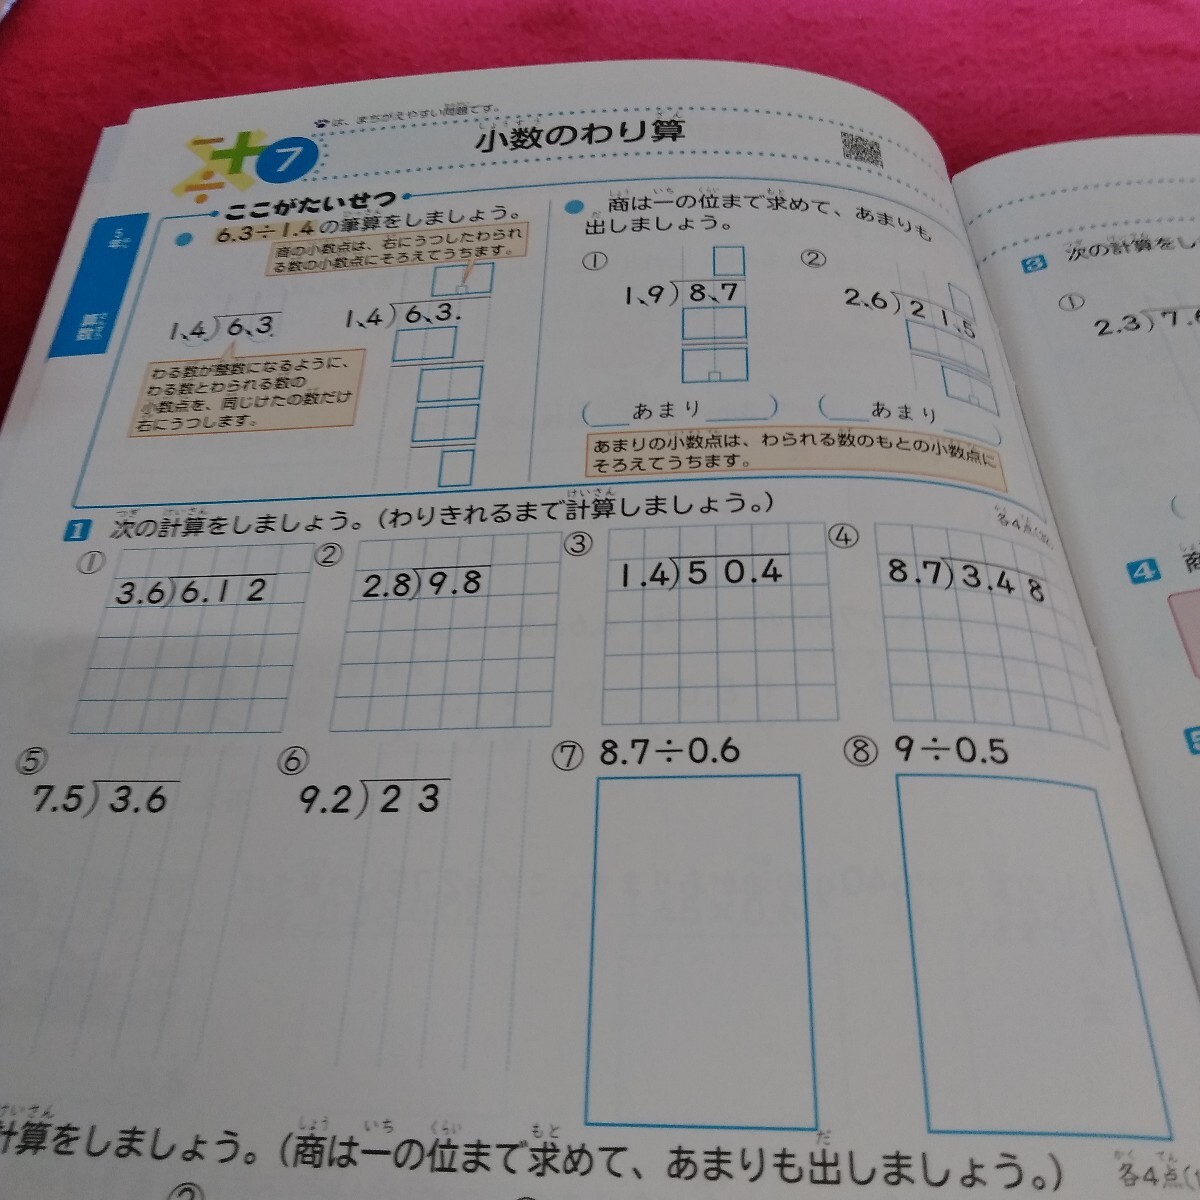 は、まちがえやすい問題です。
7
小数のわり算
5年
算数
ここがたいせつ
6.3÷1.4の筆算をしましょう。
商の小数点は、右にうつしたわられ
る数の小数点にそろえてうちます。
1.4)6.3
1.4)6.3.
わる数が整数になるように、
わる数とわられる数の
小数点を、同じけたの数だけ
右にうつします。
商は一の位まで求めて、あまりも
出しましょう。
① 1.9)8.7
② 2.6)21.5
( あまり )
( あまり )
あまりの小数点は、わられる数のもとの小数点に
そろえてうちます。
1 次の計算をしましょう。(わりきれるまで計算しましょう。)
各4点
① 3.6)6.12
② 2.8)9.8
③ 1.4)50.4
④ 8.7)3.48
⑤ 7.5)3.6
⑥ 9.2)23
⑦ 8.7÷0.6
⑧ 9÷0.5
計算をしましょう。(商は一の位まで求めて、あまりも出しましょう。)
各4点
3 次の計算をし
① 2.3)7.6
4 商
5